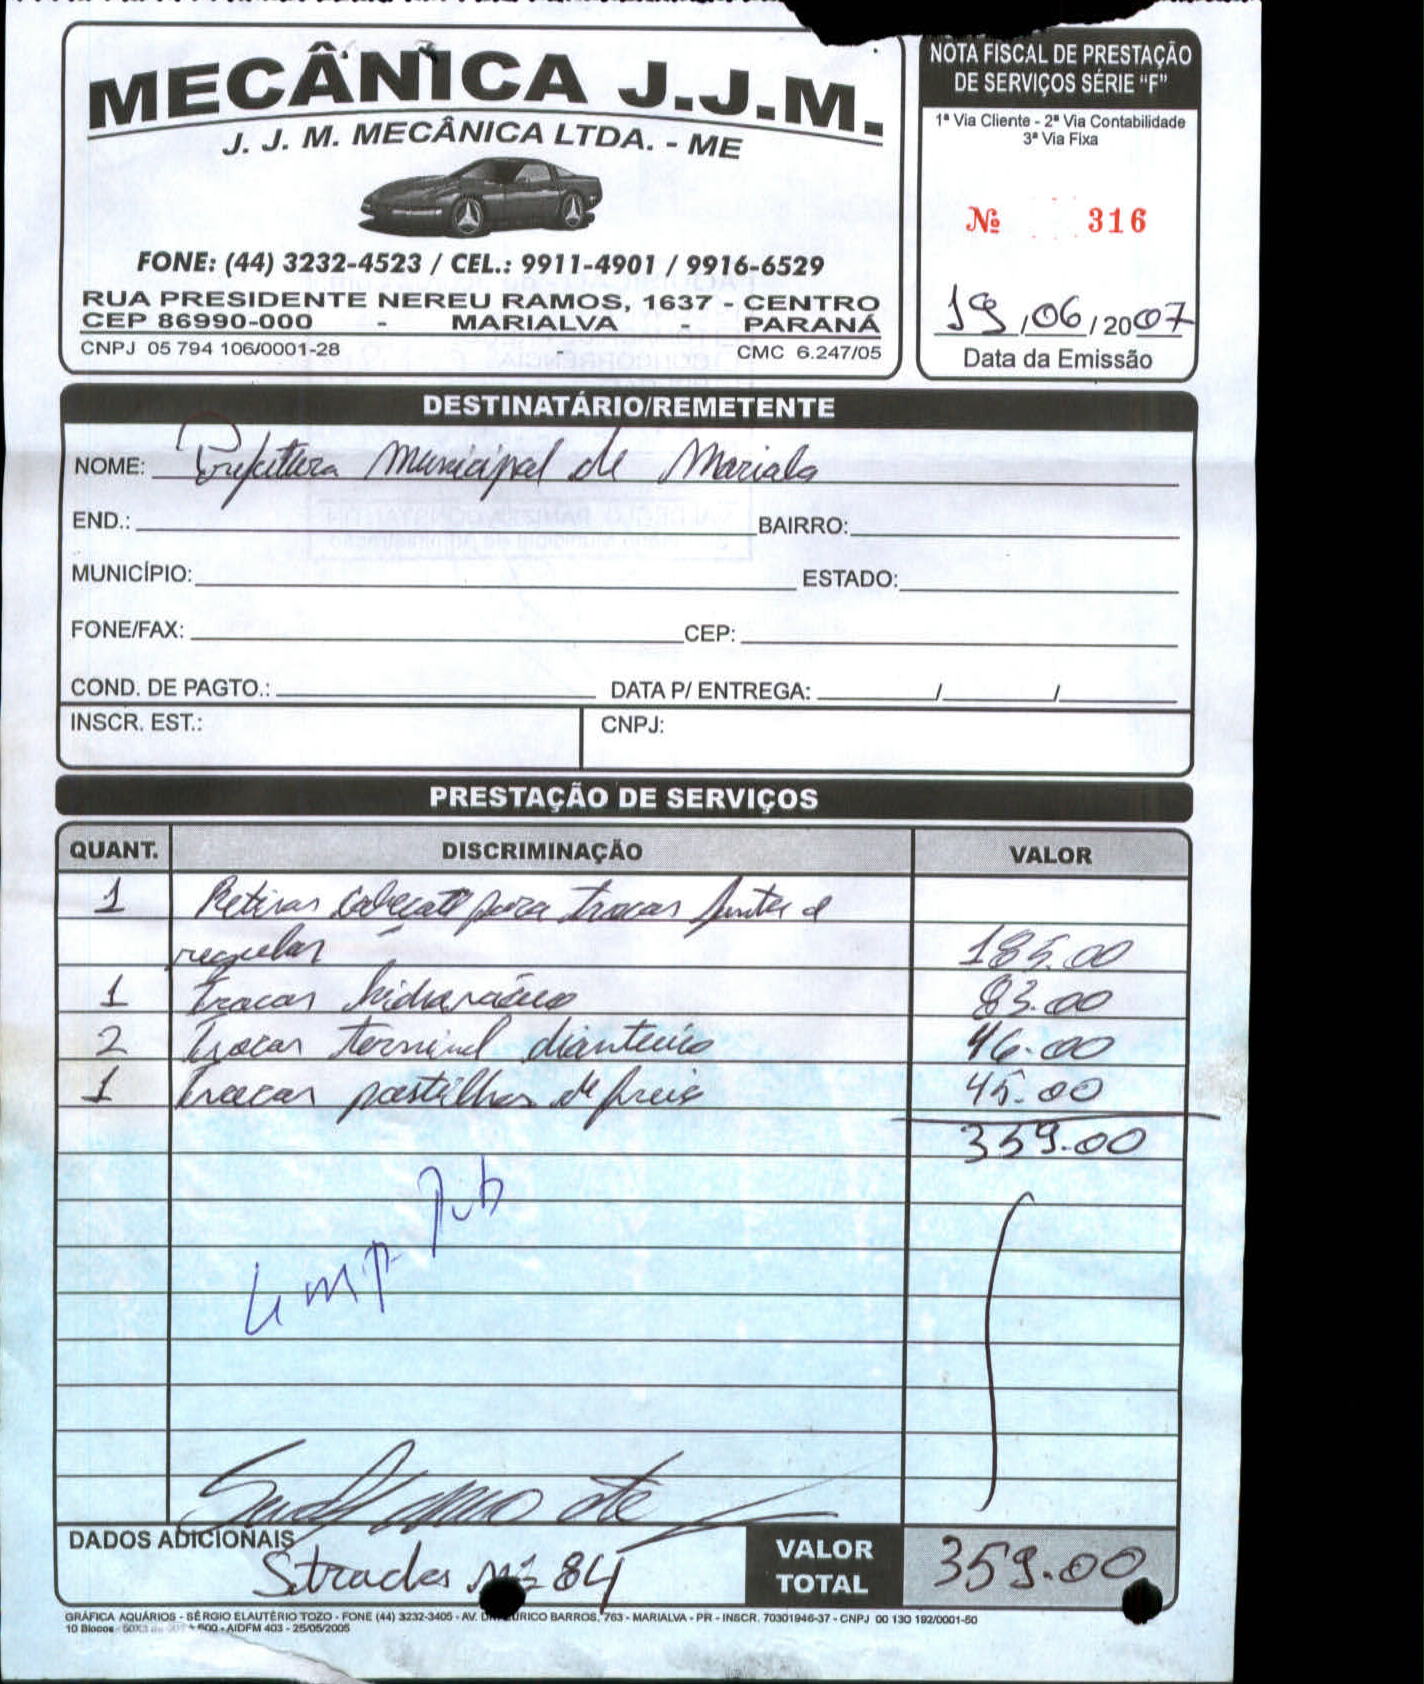 MECÂNICA J.J.M.
J. J. M. MECÂNICA LTDA. - ME
FONE: (44) 3232-4523 / CEL.: 9911-4901 / 9916-6529
RUA PRESIDENTE NEREU RAMOS, 1637 - CENTRO
CEP 86990-000 - MARIALVA - PARANÁ
CNPJ 05 794 106/0001-28 CMC 6.247/05
NOTA FISCAL DE PRESTAÇÃO
DE SERVIÇOS SÉRIE "F"
1ª Via Cliente - 2ª Via Contabilidade
3ª Via Fixa
Nº 316
19/06/2007
Data da Emissão
DESTINATÁRIO/REMETENTE
NOME: Prefeitura Municipal de
END.: BAIRRO:
MUNICÍPIO: ESTADO:
FONE/FAX: CEP:
COND. DE PAGTO.: DATA P/ ENTREGA: / /
INSCR. EST.: CNPJ:
PRESTAÇÃO DE SERVIÇOS
QUANT. DISCRIMINAÇÃO VALOR
1 Retirar cabeçote para trocar junta e
regular 185.00
1 Trocar 83.00
2 Trocar terminal dianteiro 46.00
1 Trocar pastilhas de freio 45.00
359.00
DADOS ADICIONAIS
Strada 84
VALOR
TOTAL 359.00
GRÁFICA AQUÁRIOS - SÉRGIO ELAUTÉRIO TOZO - FONE (44) 3232-3405 - AV. BARROS, 763 - MARIALVA - PR - INSCR. 70301946-37 - CNPJ 00 130 192/0001-50
10 Blocos - AIDFM 403 - 25/05/2005